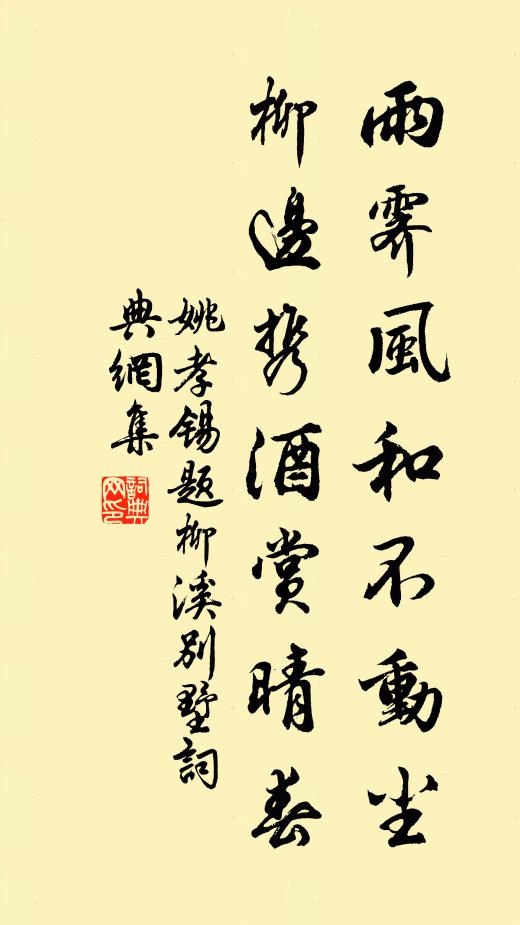 雨霽風和不動尘
柳邊携酒賞晴春
姚孝锡题柳溪别墅詞
典網集
詞典网印